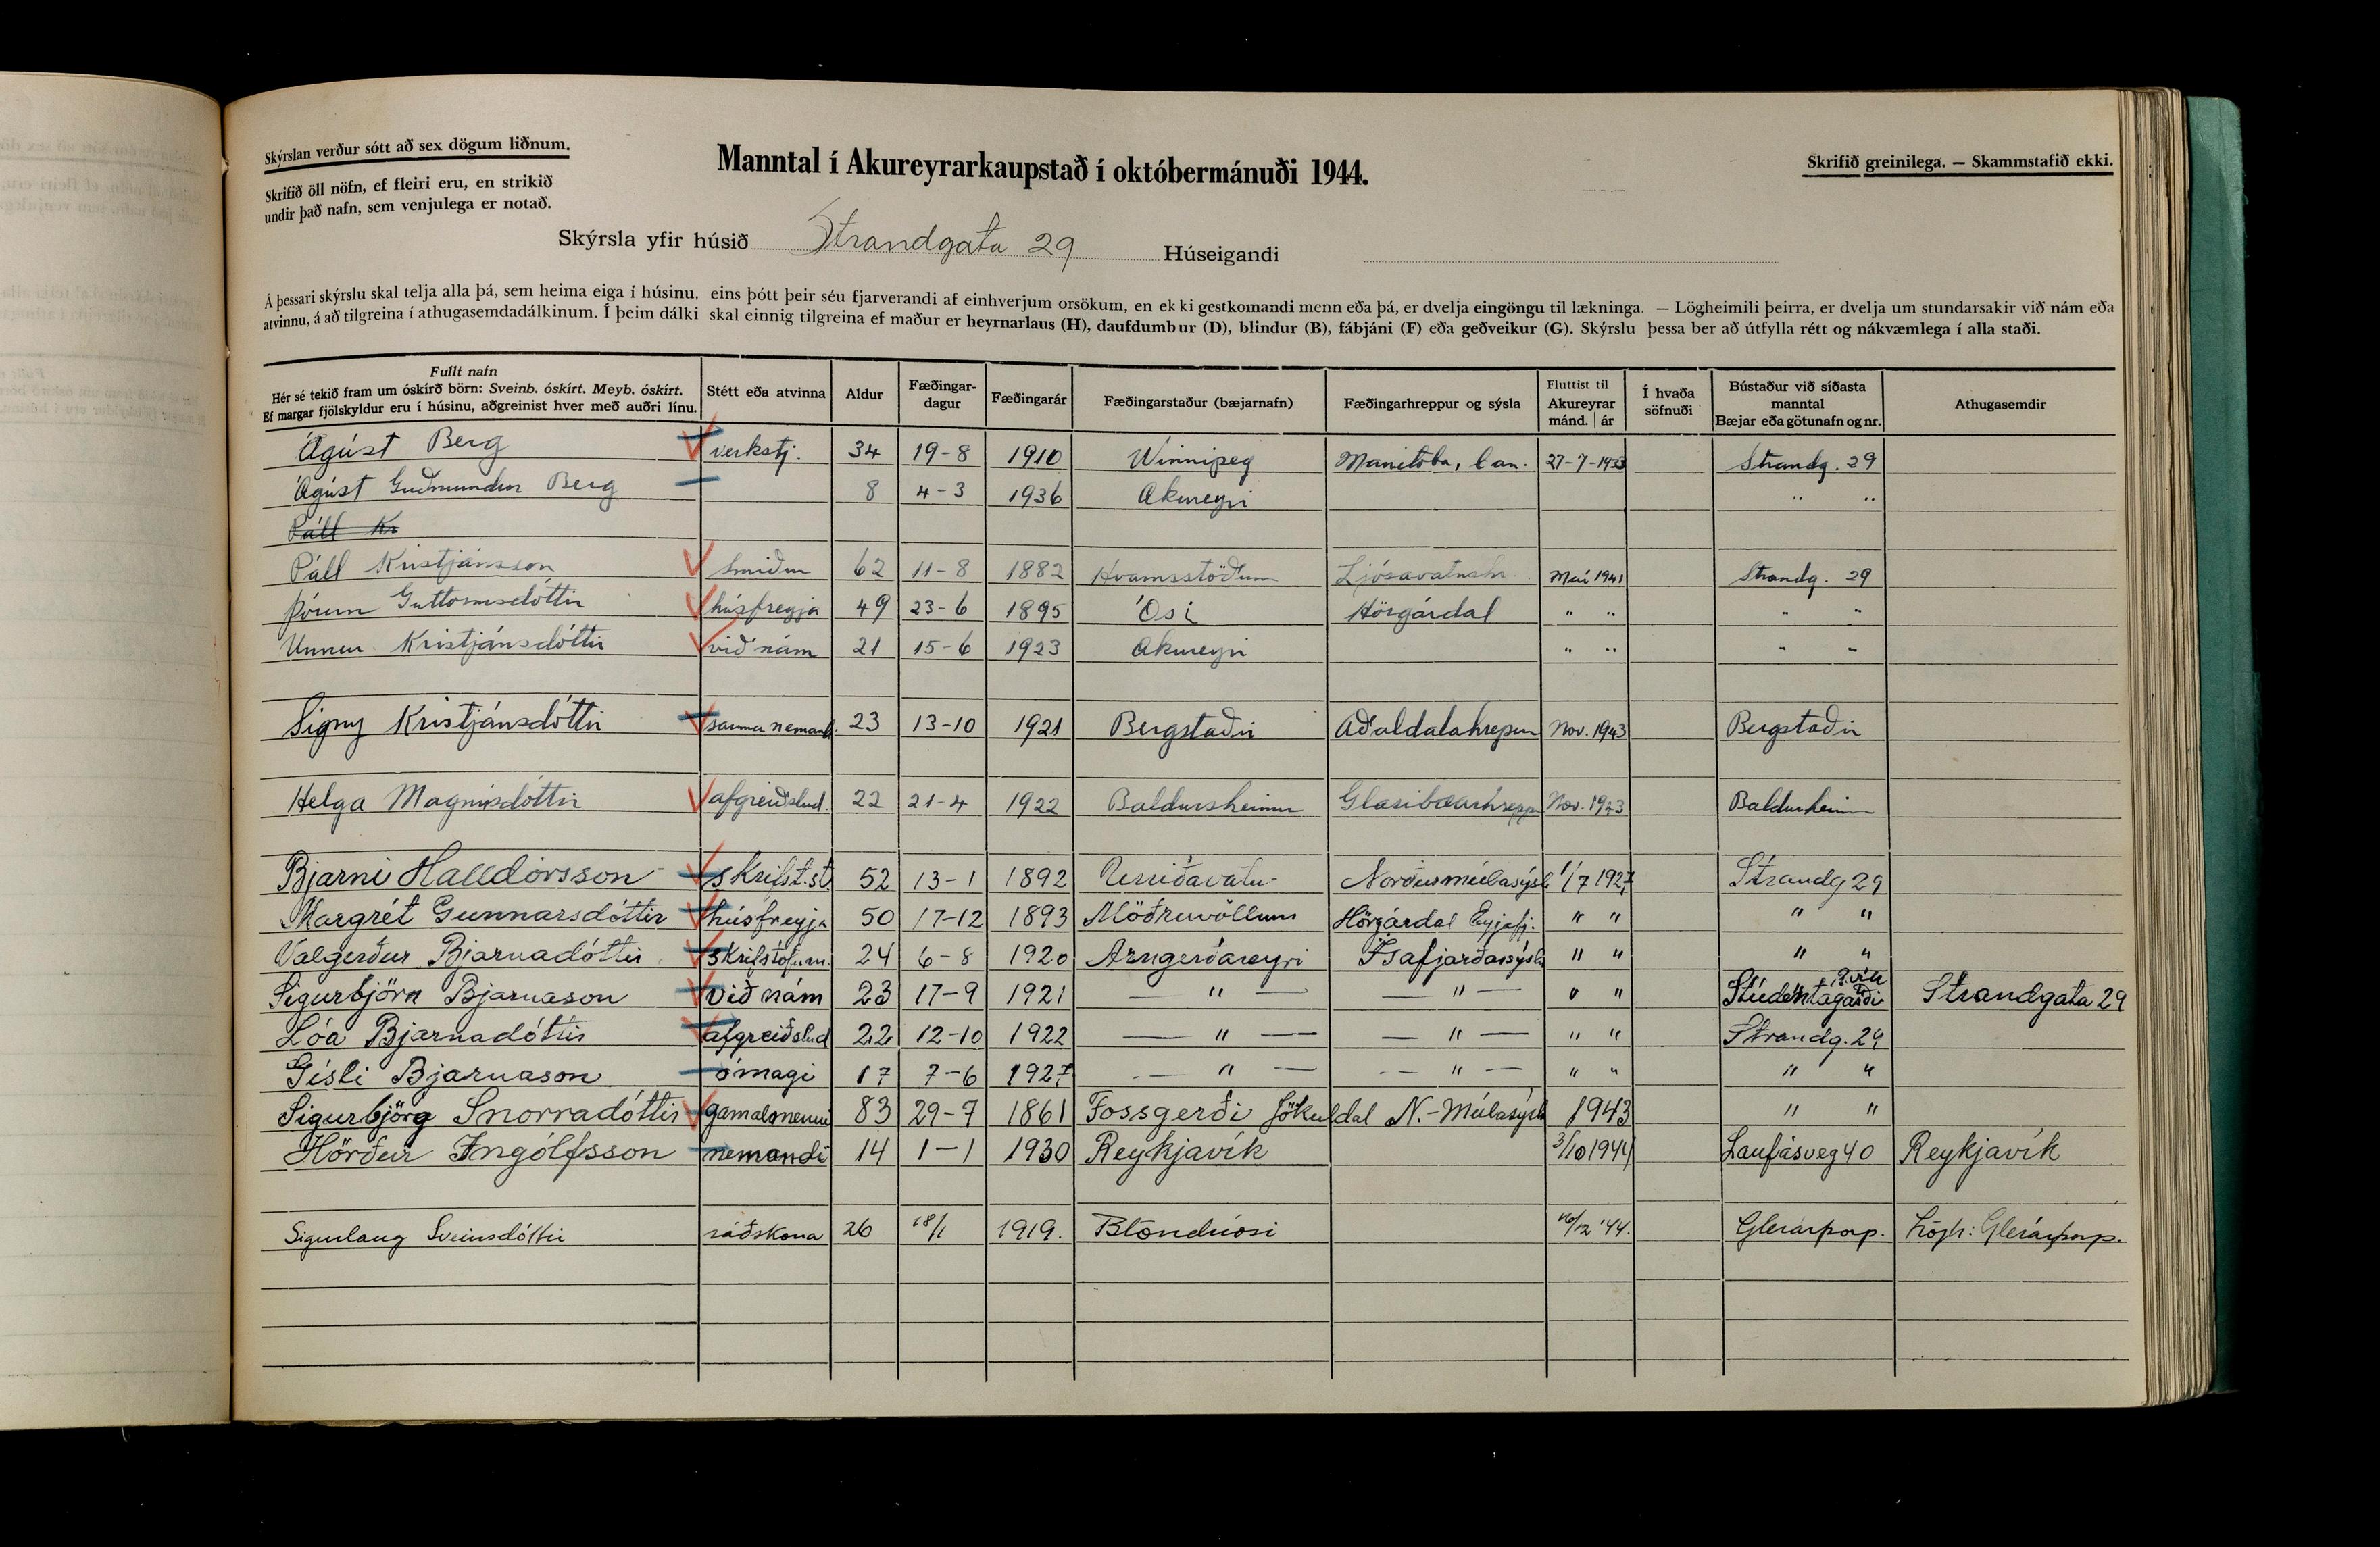 Skýrslan verður sótt að sex dögum liðnum.
Skrifið öll nöfn, ef fleiri eru, en strikið
undir það nafn, sem venjulega er notað.
Manntal í Akureyrarkaupstað í októbermánuði 1944.
Skrifið greinilega. — Skammstafið ekki.
Skýrsla yfir húsið Strandgata 29 Húseigandi
Á þessari skýrslu skal telja alla þá, sem heima eiga í húsinu, eins þótt þeir séu fjarverandi af einhverjum orsökum, en ekki gestkomandi menn eða þá, er dvelja eingöngu til lækninga. — Lögheimili þeirra, er dvelja um stundarsakir við nám eða
atvinnu, á að tilgreina í athugasemdadálkinum. Í þeim dálki skal einnig tilgreina ef maður er heyrnarlaus (H), daufdumbur (D), blindur (B), fábjáni (F) eða geðveikur (G). Skýrslu þessa ber að útfylla rétt og nákvæmlega í alla staði.
Fullt nafn
Hér sé tekið fram um óskírð börn: Sveinb. óskírt. Meyb. óskírt.
Ef margar fjölskyldur eru í húsinu, aðgreinist hver með auðri línu.
Stétt eða atvinna
Aldur
Fæðingar-
dagur
Fæðingarár
Fæðingarstaður (bæjarnafn)
Fæðingarhreppur og sýsla
Fluttist til
Akureyrar
mánd. | ár
Í hvaða
söfnuði
Bústaður við síðasta
manntal
Bæjar eða götunafn og nr.
Athugasemdir
Ágúst Berg verkstj. 34 19-8 1910 Winnipeg Manitoba, Can. 27-7-1933 Strandg. 29
Ágúst Guðmundur Berg 8 4-3 1936 Akureyri " "
Páll Kr
Páll Kristjánsson Smiður 62 11-8 1882 Hvamsstöðum Ljósavatnshr. Maí 1941 Strandg. 29
Þórunn Guttormsdóttir húsfreyja 49 23-6 1895 Ósi Hörgárdal " " " "
Unnur Kristjánsdóttir við nám 21 15-6 1923 Akureyri " " " "
Signy Kristjánsdóttir sauma nemandi. 23 13-10 1921 Bergstaðir Aðaldalahreppur Nov. 1943 Bergstaðir
Helga Magnúsdóttir afgreiðslud. 22 21-4 1922 Baldursheimur Glæsibæarhrepp Nov. 1943 Baldursheim
Bjarni Halldórsson skrifst.st 52 13-1 1892 Norðurmúlasýsl 1/7 1927 Strandg 29
Margrét Gunnarsdóttir húsfreyja 50 17-12 1893 Möðruvöllum Hörgárdal Eyjafj. " " " "
Valgerður Bjarnadóttir skrifstofum. 24 6-8 1920 Arngerðareyri Ísafjarðarsýsla " " " "
Sigurbjörn Bjarnason við nám 23 17-9 1921 — " — — " — " " Stúdentagarði Rvík Strandgata 29
Lóa Bjarnadóttir afgreiðslud 22 12-10 1922 — " — — " — " " Strandg. 29
Gísli Bjarnason ómagi 17 7-6 1927 — " — — " — " " " "
Sigurbjörg Snorradóttir gamalmenni 83 29-7 1861 Fossgerði Jökuldal N.-Múlasýsla 1943 " "
Hörður Ingólfsson nemandi 14 1-1 1930 Reykjavík 3/10 1944 Laufásveg 40 Reykjavík
Sigurlaug Sveinsdóttir ráðskona 26 18/1 1919. Blönduósi 16/12 '44. Glerárþorp. Lögh: Glerárþorp.